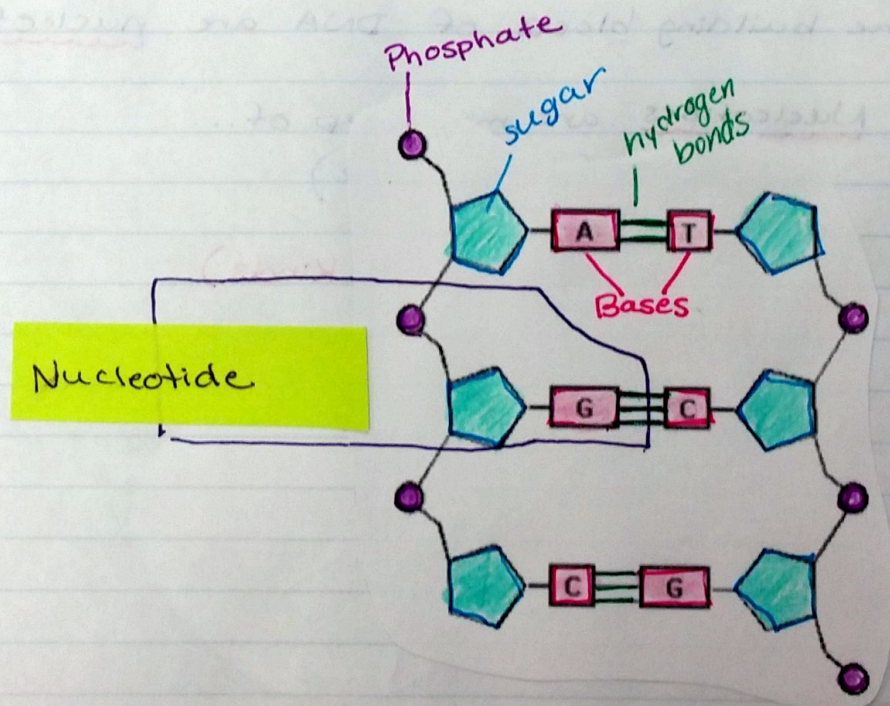 Phosphate
sugar
hydrogen
bonds
A T
Bases
Nucleotide
G C
C G